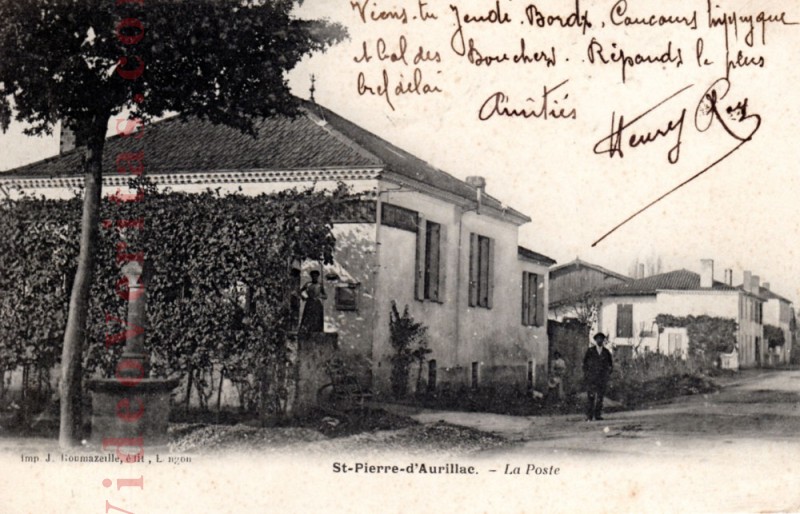 Viens-tu Jeudi. Bordx. Concours hippique
et bal des Bouchers. Réponds le plus
bref délai
Amitiés
Henry Rey
Imp. J. Roumazeille, édit., Langon
St-Pierre-d'Aurillac. - La Poste